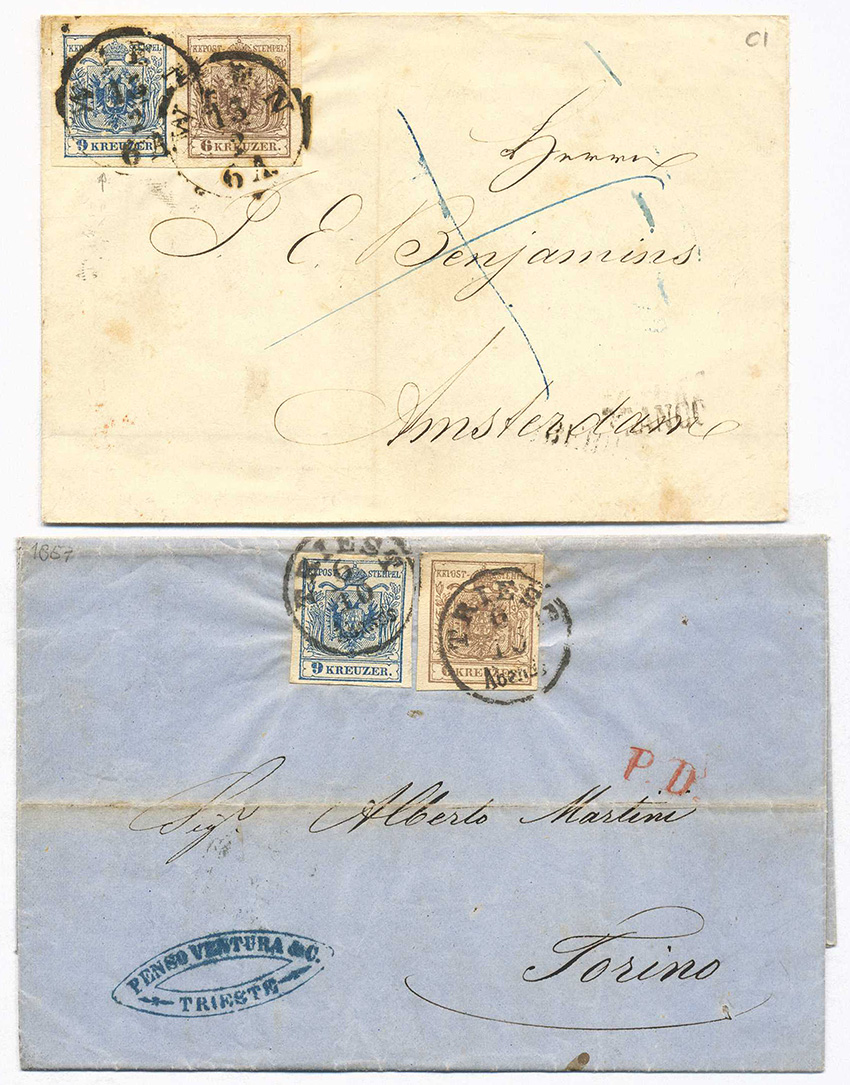 01
KKPOST-STEMPEL
9 KREUZER.
KKPOST-STEMPEL
6 KREUZER.
WIEN
WIEN
13
6A
Herrn
J. E. Benjamins
Amsterdam
FRANCO
1857
KKPOST-STEMPEL
9 KREUZER.
KKPOST-STEMPEL
6 KREUZER.
TRIEST
10
TRIEST
6
10
Abends
P.D.
Sigr Alberto Martini
Torino
PENSO VENTURA & C.
TRIESTE